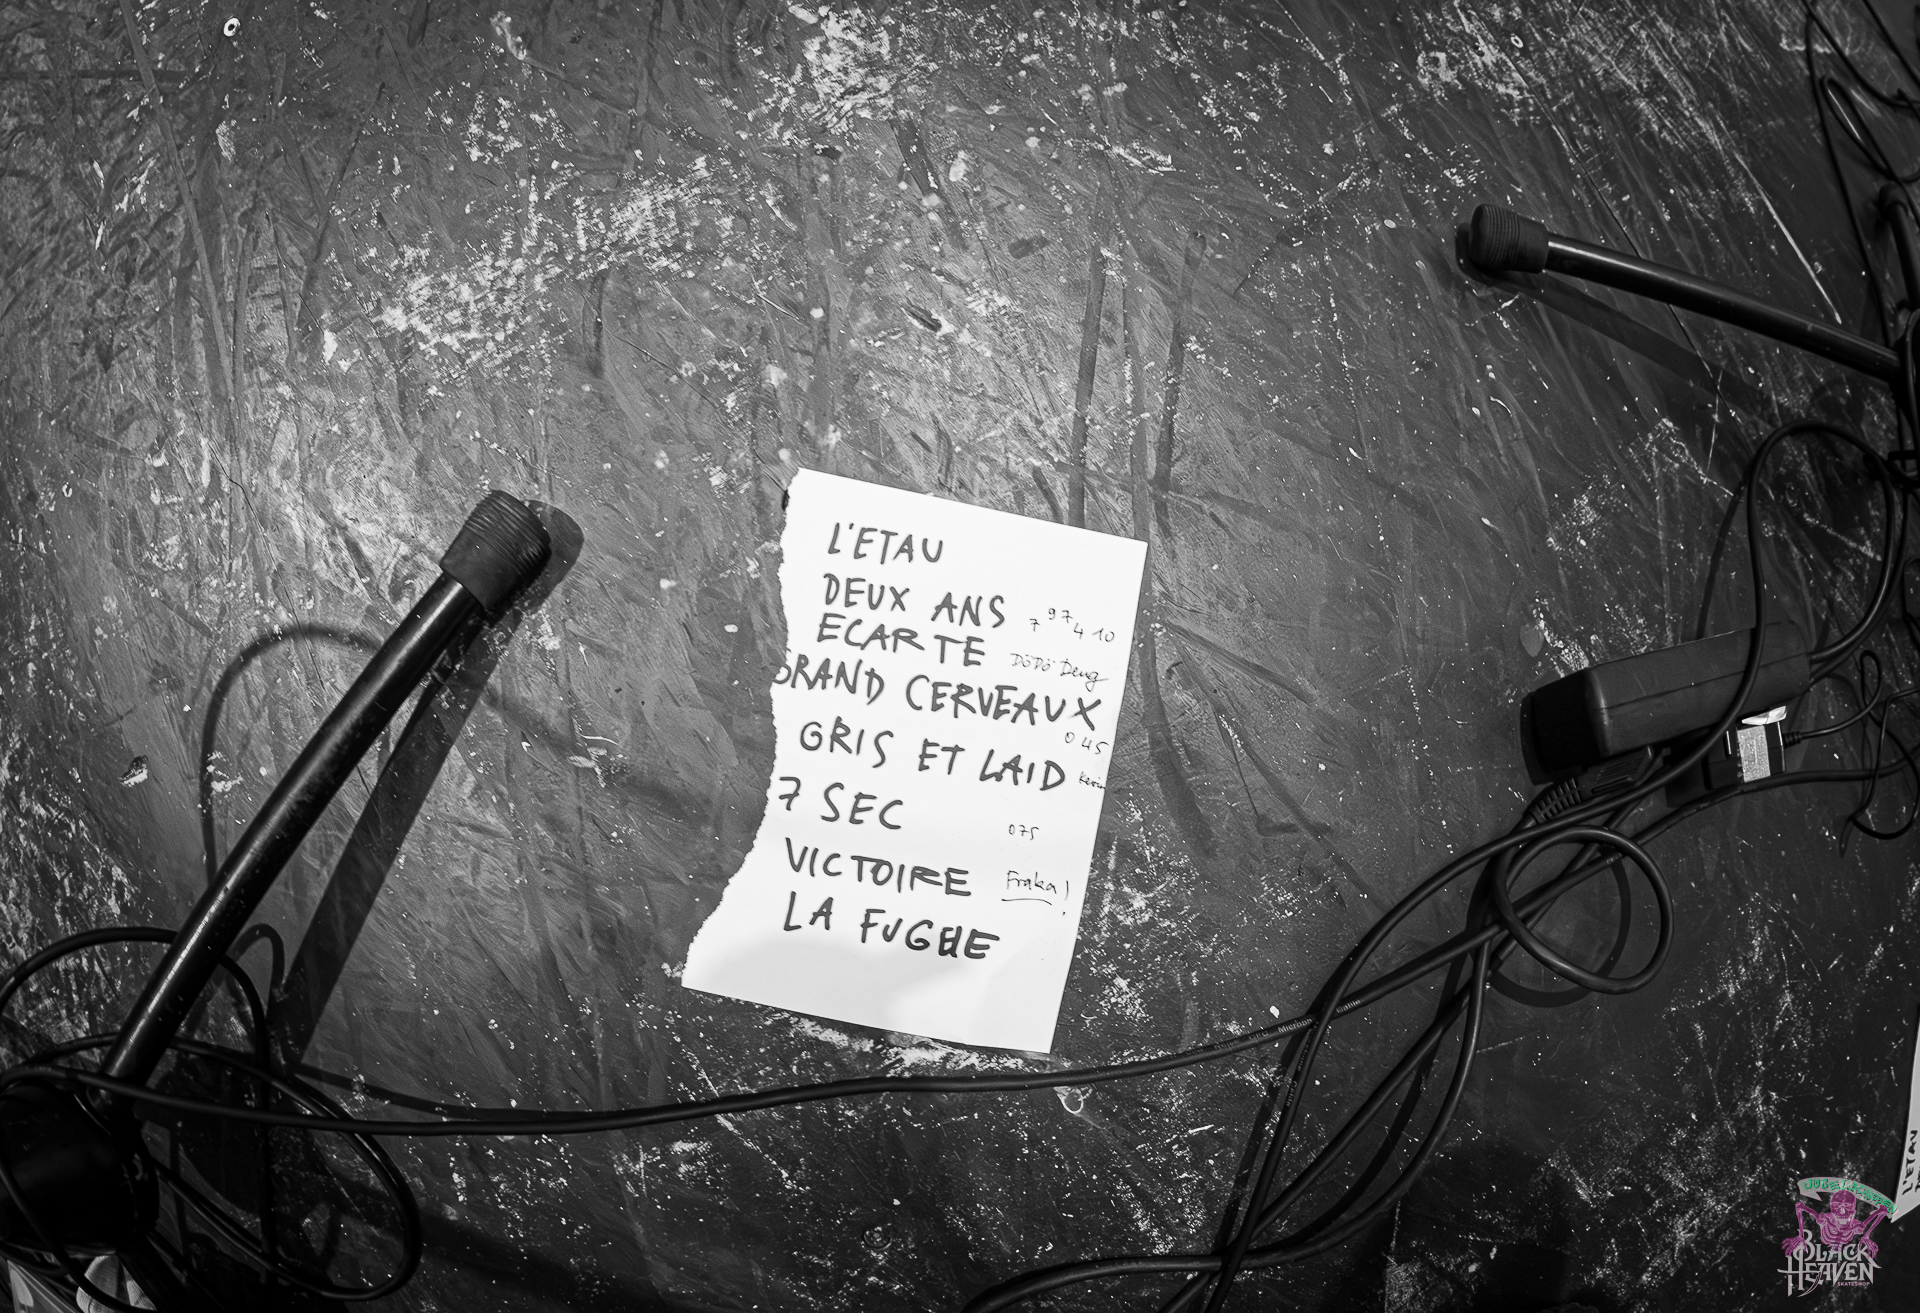 L'ETAU
DEUX ANS
7 9 7 4 10
ECARTE
DÖDÖ Deng
GRAND CERVEAUX
045
GRIS ET LAID
Kevin
7 SEC
075
VICTOIRE
Fraka!
LA FUGUE
Microphone Cable
L'ETAU
BLACK
HEAVEN
SKATESHOP